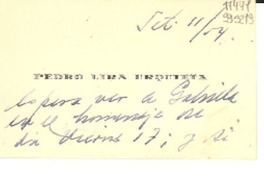 Set. 11/54.
PEDRO LIRA URQUIETA
espera ver a Gabriela
en el homenaje de
día viernes 17; y si